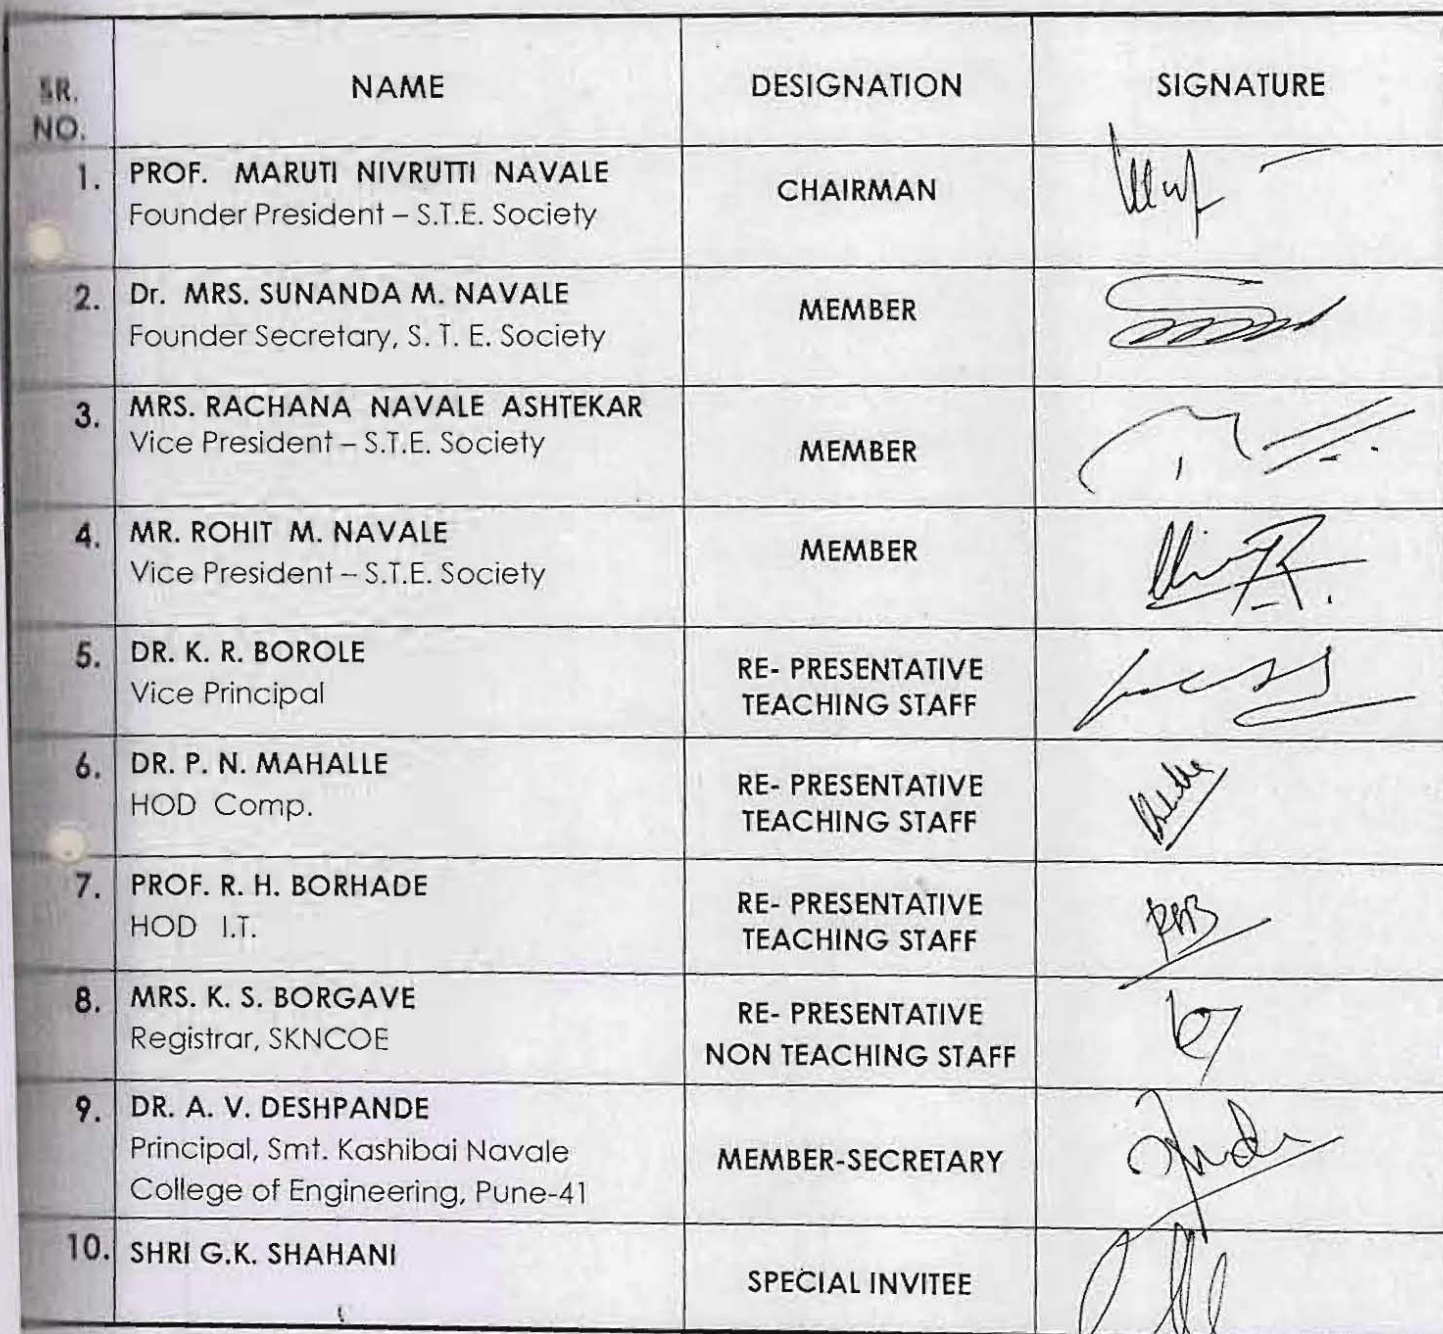 SR. NO.
NAME
DESIGNATION
SIGNATURE
1.
PROF. MARUTI NIVRUTTI NAVALE
Founder President – S.T.E. Society
CHAIRMAN
2.
Dr. MRS. SUNANDA M. NAVALE
Founder Secretary, S. T. E. Society
MEMBER
3.
MRS. RACHANA NAVALE ASHTEKAR
Vice President – S.T.E. Society
MEMBER
4.
MR. ROHIT M. NAVALE
Vice President – S.T.E. Society
MEMBER
5.
DR. K. R. BOROLE
Vice Principal
RE- PRESENTATIVE
TEACHING STAFF
6.
DR. P. N. MAHALLE
HOD Comp.
RE- PRESENTATIVE
TEACHING STAFF
7.
PROF. R. H. BORHADE
HOD I.T.
RE- PRESENTATIVE
TEACHING STAFF
8.
MRS. K. S. BORGAVE
Registrar, SKNCOE
RE- PRESENTATIVE
NON TEACHING STAFF
9.
DR. A. V. DESHPANDE
Principal, Smt. Kashibai Navale
College of Engineering, Pune-41
MEMBER-SECRETARY
10.
SHRI G.K. SHAHANI
SPECIAL INVITEE